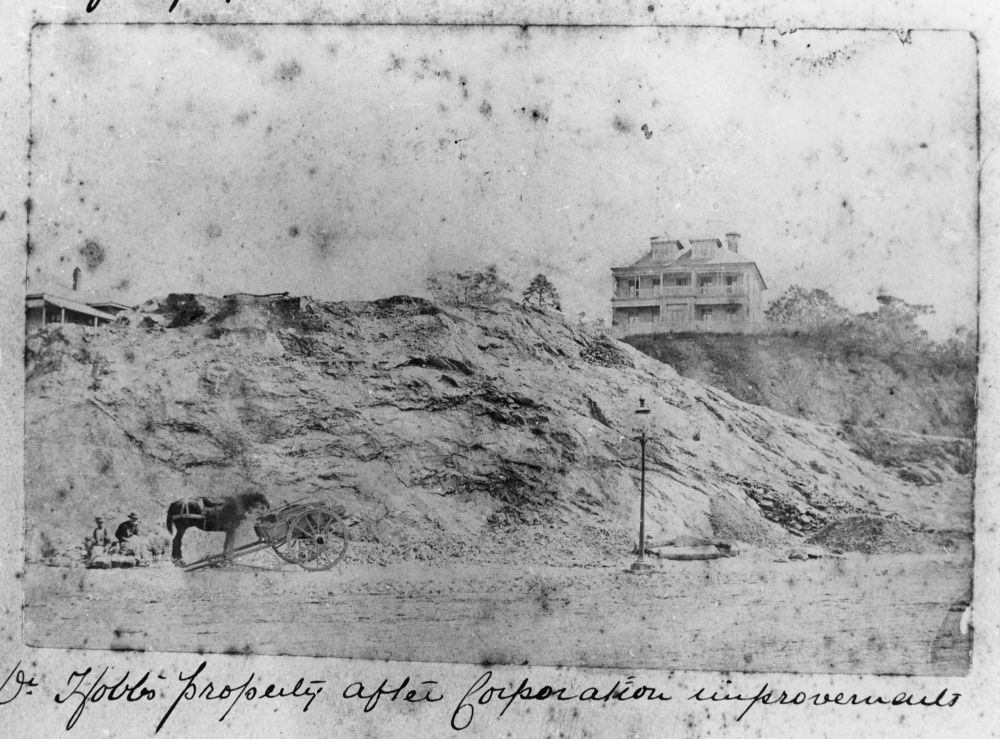 Dr Hobbs' property after Corporation improvements